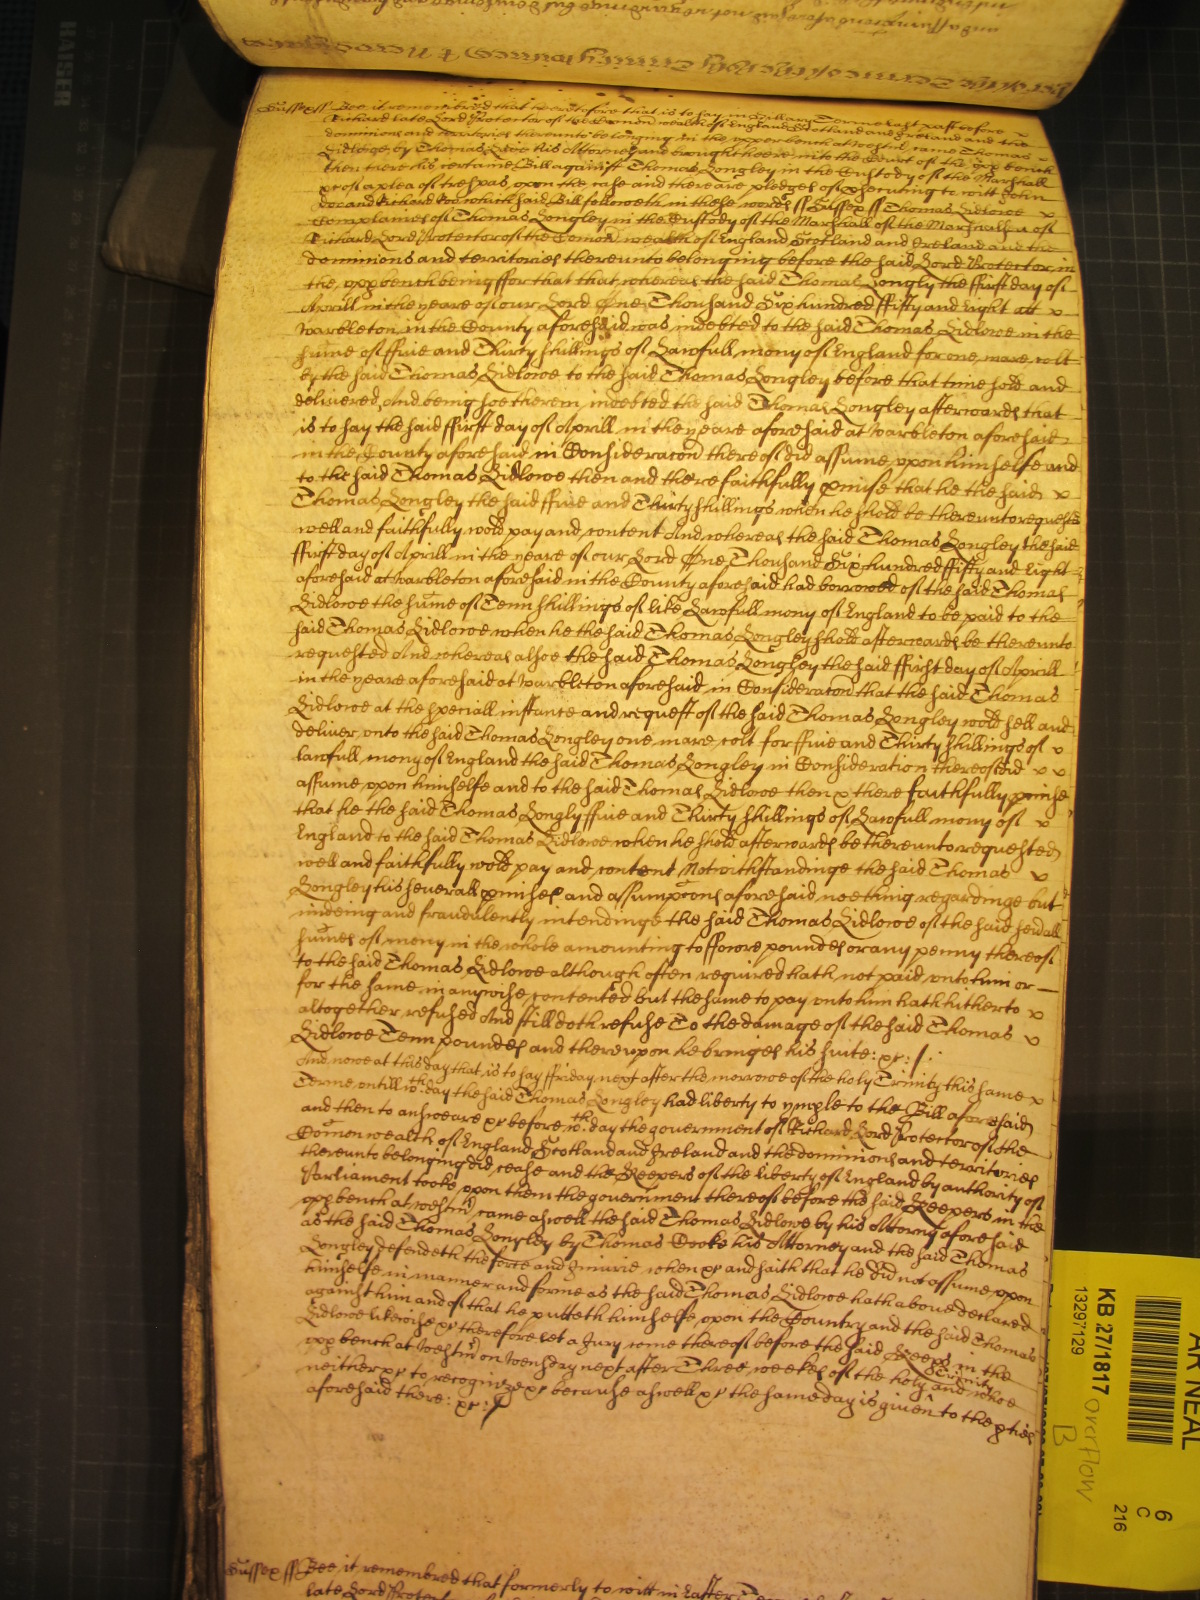 HAISER
Sussex ss Bee it remembred that heretofore that is to say in Hillary Terme last past before
Richard late Lord Protector of the Comon wealth of England Scotland and Ireland and the
dominions and territories thereunto belonging in the upper bench at Westm came Thomas
Lidlowe by Thomas his Attorney and brought heere into the Court of the upp bench
then there his certaine Bill against Thomas Longley in the Custody of the Marshall
xc of a plea of trespas upon the case and there are pledges of psecuting to witt John
doe and Richard Roo which said Bill followeth in these words ss Sussex ss Thomas Lidlowe
Complaines of Thomas Longley in the Custody of the Marshall of the Marshallsea of
Richard Lord Protector of the Comon wealth of England Scotland and Ireland and the
dominions and territories thereunto belonging before the said Lord Protector in
the upp bench being ffor that that whereas the said Thomas Longly the ffirst day of
Aprill in the yeare of our Lord One Thousand Six hundred ffifty and Eight att
Warbleton in the County aforesaid was indebted to the said Thomas Lidlowe in the
sume of ffive and Thirty shillings of Lawfull mony of England for one mare colt
by the said Thomas Lidlowe to the said Thomas Longley before that time sold and
delivered And being soe therein indebted the said Thomas Longley afterwards that
is to say the said ffirst day of Aprill in the yeare aforesaid at Warbleton aforesaid
in the County aforesaid in Consideracon thereof did assume upon himselfe and
to the said Thomas Lidlowe then and there faithfully pmise that he the said
Thomas Longley the said ffive and Thirty shillings when he shold be thereunto requested
well and faithfully wold pay and content And whereas the said Thomas Longley the said
ffirst day of Aprill in the yeare of our Lord One Thousand Six hundred ffifty and Eight
aforesaid at Warbleton aforesaid in the County aforesaid had borrowed of the said Thomas
Lidlowe the sume of Tenn shillings of like Lawfull mony of England to be paid to the
said Thomas Lidlowe when he the said Thomas Longley shold afterwards be thereunto
requested And whereas alsoe the said Thomas Longley the said ffirst day of Aprill
in the yeare aforesaid at Warbleton aforesaid in Consideracon that the said Thomas
Lidlowe at the speciall instance and request of the said Thomas Longley wold sell and
deliver unto the said Thomas Longley one mare colt for ffive and Thirty shillings of
lawfull mony of England the said Thomas Longley in Consideration thereof did
assume upon himselfe and to the said Thomas Lidlowe then & there faithfully pmise
that he the said Thomas Longly ffive and Thirty shillings of Lawfull mony of
England to the said Thomas Lidlowe when he shold afterwards be thereunto requested
well and faithfully wold pay and content Notwithstandinge the said Thomas
Longley his severall pmises and assumpcons aforesaid noething regardinge but
mindeing and fraudulently intendinge the said Thomas Lidlowe of the said sevall
sumes of mony in the whole amounting to ffowre poundes or any penny thereof
to the said Thomas Lidlowe although often required hath not paid unto him or
for the same in anywise contented but the same to pay unto him hath hitherto
altogether refused And still doth refuse To the damage of the said Thomas
Lidlowe Tenn poundes and thereupon he bringes his suite: xc:
And nowe at this day that is to say ffriday next after the morrowe of the holy Trinity this same
Terme untill wch day the said Thomas Longley had liberty to ymple to the Bill aforesaid
and then to answeare xc before wch day the government of Richard Lord Protector of the
Comonwealth of England Scotland and Ireland and the dominions and territories
thereunto belonging did cease and the Keepers of the liberty of England by authority of
Parliament tooke upon them the government thereof before the said Keepers in the
upp bench at Westm came aswell the said Thomas Lidlowe by his Attorny aforesaid
as the said Thomas Longley by Thomas Cooke his Attorney and the said Thomas
Longley defendeth the force and Iniurie when xc and saith that he did not assume upon
himselfe in manner and forme as the said Thomas Lidlowe hath above declared
against him and of that he putteth himselfe upon the Country and the said Thomas
Lidlowe likewise xc therefore let a Jury come thereof before the said Keeps in the
upp bench at Westm on Wensday next after Three weekes of the holy Trinity and whoe
neither xc to recognize xc because aswell xc the same day is given to the pties
aforesaid there: xc:
Sussex ss Bee it remembred that formerly to witt in Easter
late Lord Protector
KB 27/1817 Overflow
13297129
B
AR NEAL
6
C
216